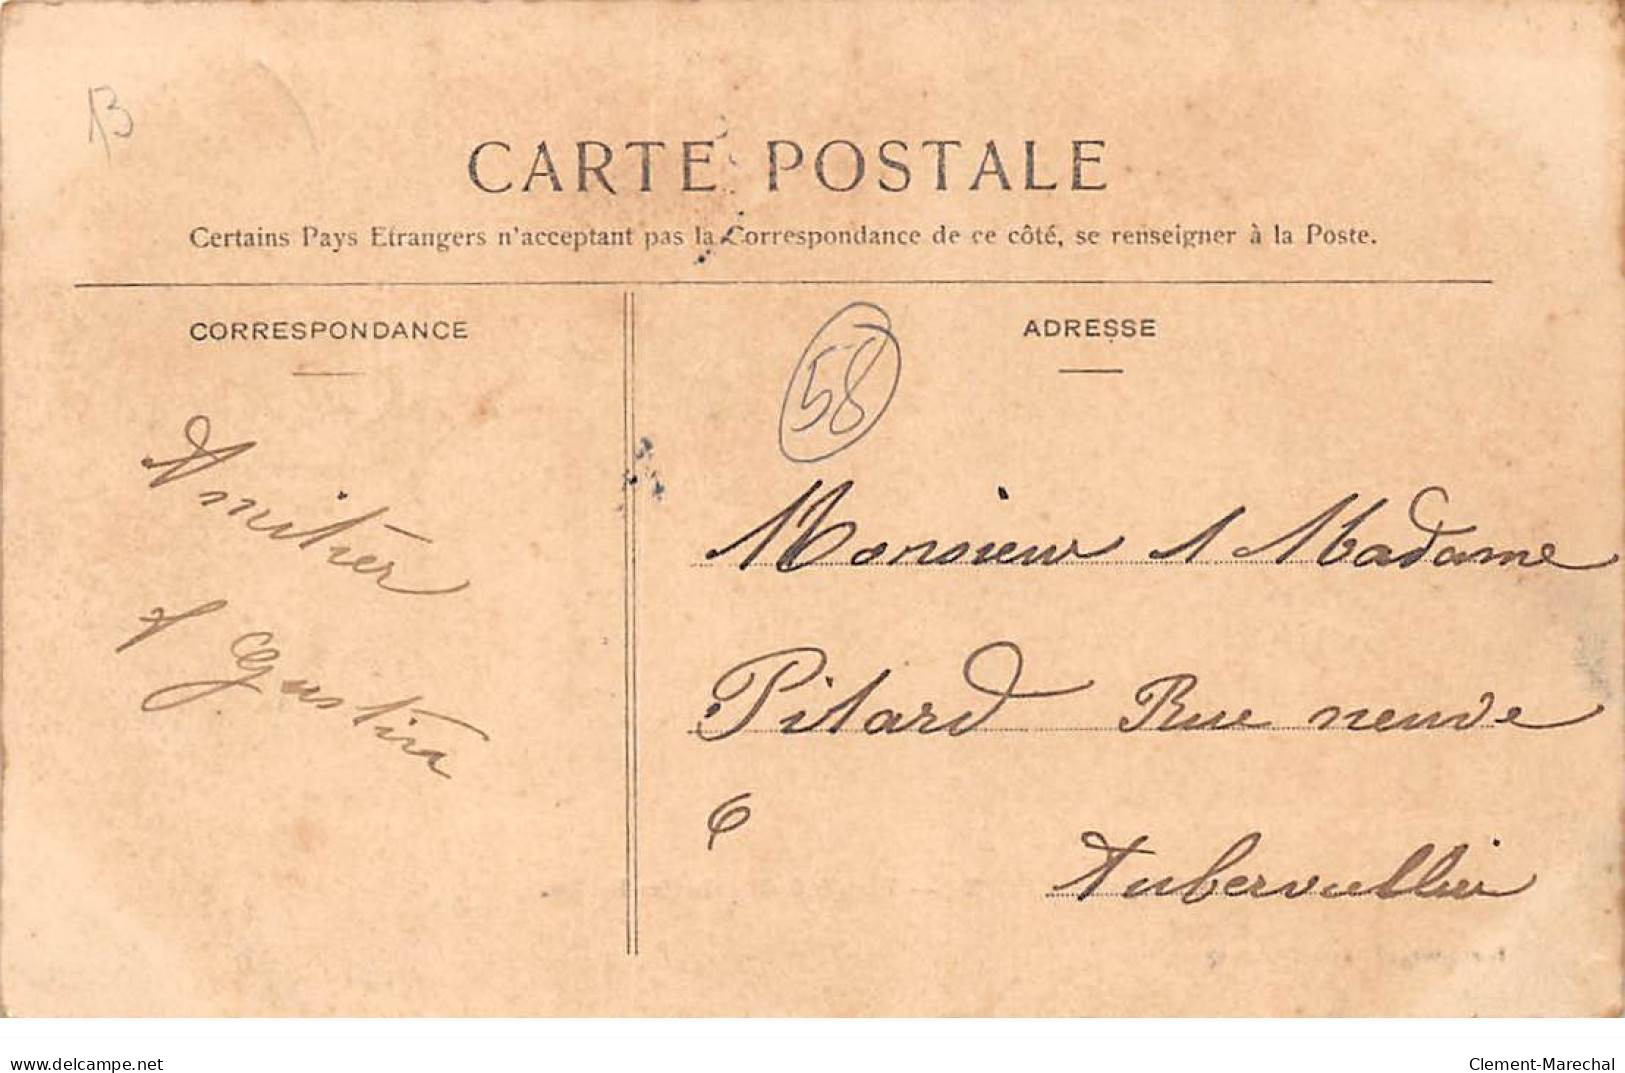 13
CARTE POSTALE
Certains Pays Etrangers n'acceptant pas la Correspondance de ce côté, se renseigner à la Poste.
CORRESPONDANCE
ADRESSE
58
Amitier
Monsieur & Madame
Pitard Rue neuve
6
Aubervillier
delcampe.net
Clement-Marechal